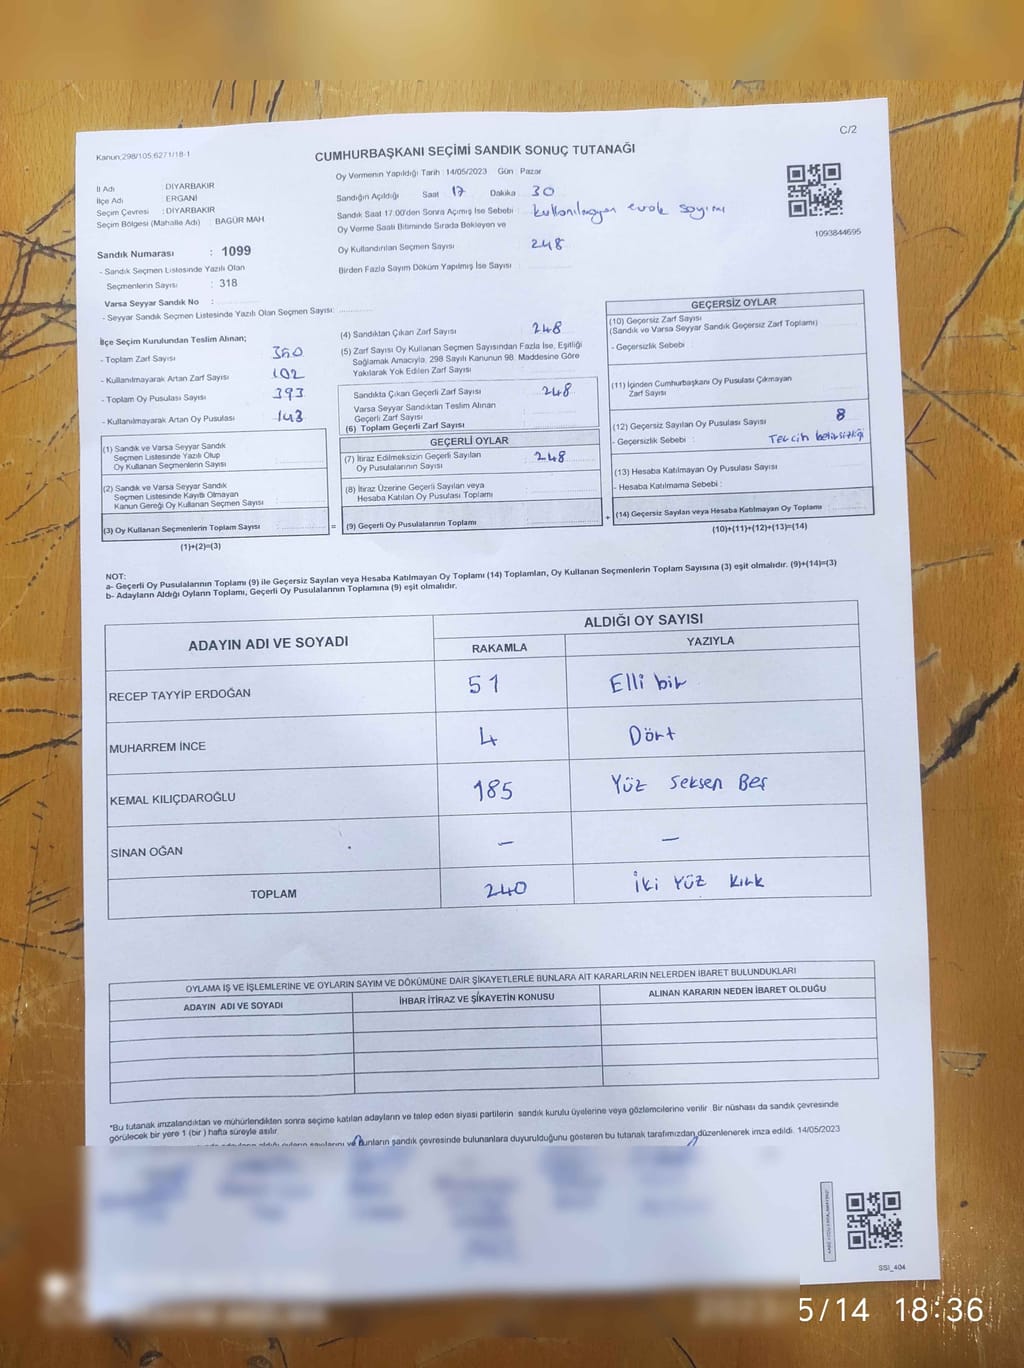 C/2
Kanun;298/105;6271/18-1
CUMHURBAŞKANI SEÇİMİ SANDIK SONUÇ TUTANAĞI
Oy Vermenin Yapıldığı Tarih :14/05/2023 Gün Pazar
İl Adı : DİYARBAKIR
İlçe Adı : ERGANİ
Seçim Çevresi : DİYARBAKIR
Seçim Bölgesi (Mahalle Adı) : BAGÜR MAH
Sandığın Açıldığı Saat 17 Dakika 30
Sandık Saat 17.00'den Sonra Açımış İse Sebebi : kullanılmayan evrak sayımı
Oy Verme Saati Bitiminde Sırada Bekleyen ve
Oy Kullandırılan Seçmen Sayısı 248
Birden Fazla Sayım Döküm Yapılmış İse Sayısı :
1093844695
Sandık Numarası : 1099
- Sandık Seçmen Listesinde Yazılı Olan
Seçmenlerin Sayısı : 318
Varsa Seyyar Sandık No :
- Seyyar Sandık Seçmen Listesinde Yazılı Olan Seçmen Sayısı:
İlçe Seçim Kurulundan Teslim Alınan;
- Toplam Zarf Sayısı : 350
- Kullanılmayarak Artan Zarf Sayısı : 102
- Toplam Oy Pusulası Sayısı : 393
- Kullanılmayarak Artan Oy Pusulası : 143
(4) Sandıktan Çıkan Zarf Sayısı : 248
(5) Zarf Sayısı Oy Kullanan Seçmen Sayısından Fazla İse, Eşitliği
Sağlamak Amacıyla, 298 Sayılı Kanunun 98. Maddesine Göre
Yakılarak Yok Edilen Zarf Sayısı
Sandıkta Çıkan Geçerli Zarf Sayısı : 248
Varsa Seyyar Sandıktan Teslim Alınan
Geçerli Zarf Sayısı
(6) Toplam Geçerli Zarf Sayısı
GEÇERLİ OYLAR
(7) İtiraz Edilmeksizin Geçerli Sayılan
Oy Pusulalarının Sayısı : 248
(8) İtiraz Üzerine Geçerli Sayılan veya
Hesaba Katılan Oy Pusulası Toplamı
(9) Geçerli Oy Pusulalarının Toplamı
GEÇERSİZ OYLAR
(10) Geçersiz Zarf Sayısı
(Sandık ve Varsa Seyyar Sandık Geçersiz Zarf Toplamı)
- Geçersizlik Sebebi :
(11) İçinden Cumhurbaşkanı Oy Pusulası Çıkmayan
Zarf Sayısı
(12) Geçersiz Sayılan Oy Pusulası Sayısı 8
- Geçersizlik Sebebi : Tercih belirsizliği
(13) Hesaba Katılmayan Oy Pusulası Sayısı
- Hesaba Katılmama Sebebi :
(14) Geçersiz Sayılan veya Hesaba Katılmayan Oy Toplamı
(10)+(11)+(12)+(13)=(14)
(1) Sandık ve Varsa Seyyar Sandık
Seçmen Listesinde Yazılı Olup
Oy Kullanan Seçmenlerin Sayısı
(2) Sandık ve Varsa Seyyar Sandık
Seçmen Listesinde Kayıtlı Olmayan
Kanun Gereği Oy Kullanan Seçmen Sayısı
(3) Oy Kullanan Seçmenlerin Toplam Sayısı : = +
(1)+(2)=(3)
NOT:
a- Geçerli Oy Pusulalarının Toplamı (9) ile Geçersiz Sayılan veya Hesaba Katılmayan Oy Toplamı (14) Toplamları, Oy Kullanan Seçmenlerin Toplam Sayısına (3) eşit olmalıdır. (9)+(14)=(3)
b- Adayların Aldığı Oyların Toplamı, Geçerli Oy Pusulalarının Toplamına (9) eşit olmalıdır.
ADAYIN ADI VE SOYADI
ALDIĞI OY SAYISI
RAKAMLA YAZIYLA
RECEP TAYYİP ERDOĞAN 51 Elli bir
MUHARREM İNCE 4 Dört
KEMAL KILIÇDAROĞLU 185 Yüz Seksen Beş
SİNAN OĞAN — —
TOPLAM 240 İki Yüz Kırk
OYLAMA İŞ VE İŞLEMLERİNE VE OYLARIN SAYIM VE DÖKÜMÜNE DAİR ŞİKAYETLERLE BUNLARA AİT KARARLARIN NELERDEN İBARET BULUNDUKLARI
ADAYIN ADI VE SOYADI İHBAR İTİRAZ VE ŞİKAYETİN KONUSU ALINAN KARARIN NEDEN İBARET OLDUĞU
*Bu tutanak imzalandıktan ve mühürlendikten sonra seçime katılan adayların ve talep eden siyasi partilerin sandık kurulu üyelerine veya gözlemcilerine verilir. Bir nüshası da sandık çevresinde
görülecek bir yere 1 (bir) hafta süreyle asılır.
bunların sandık çevresinde bulunanlara duyurulduğunu gösteren bu tutanak tarafımızdan düzenlenerek imza edildi. 14/05/2023
SSI_404
5/14 18:36